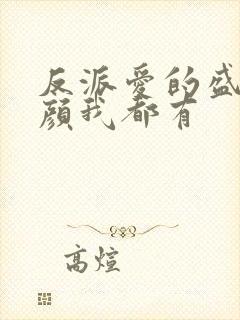 反派爱的盛
颜我都有
高煊